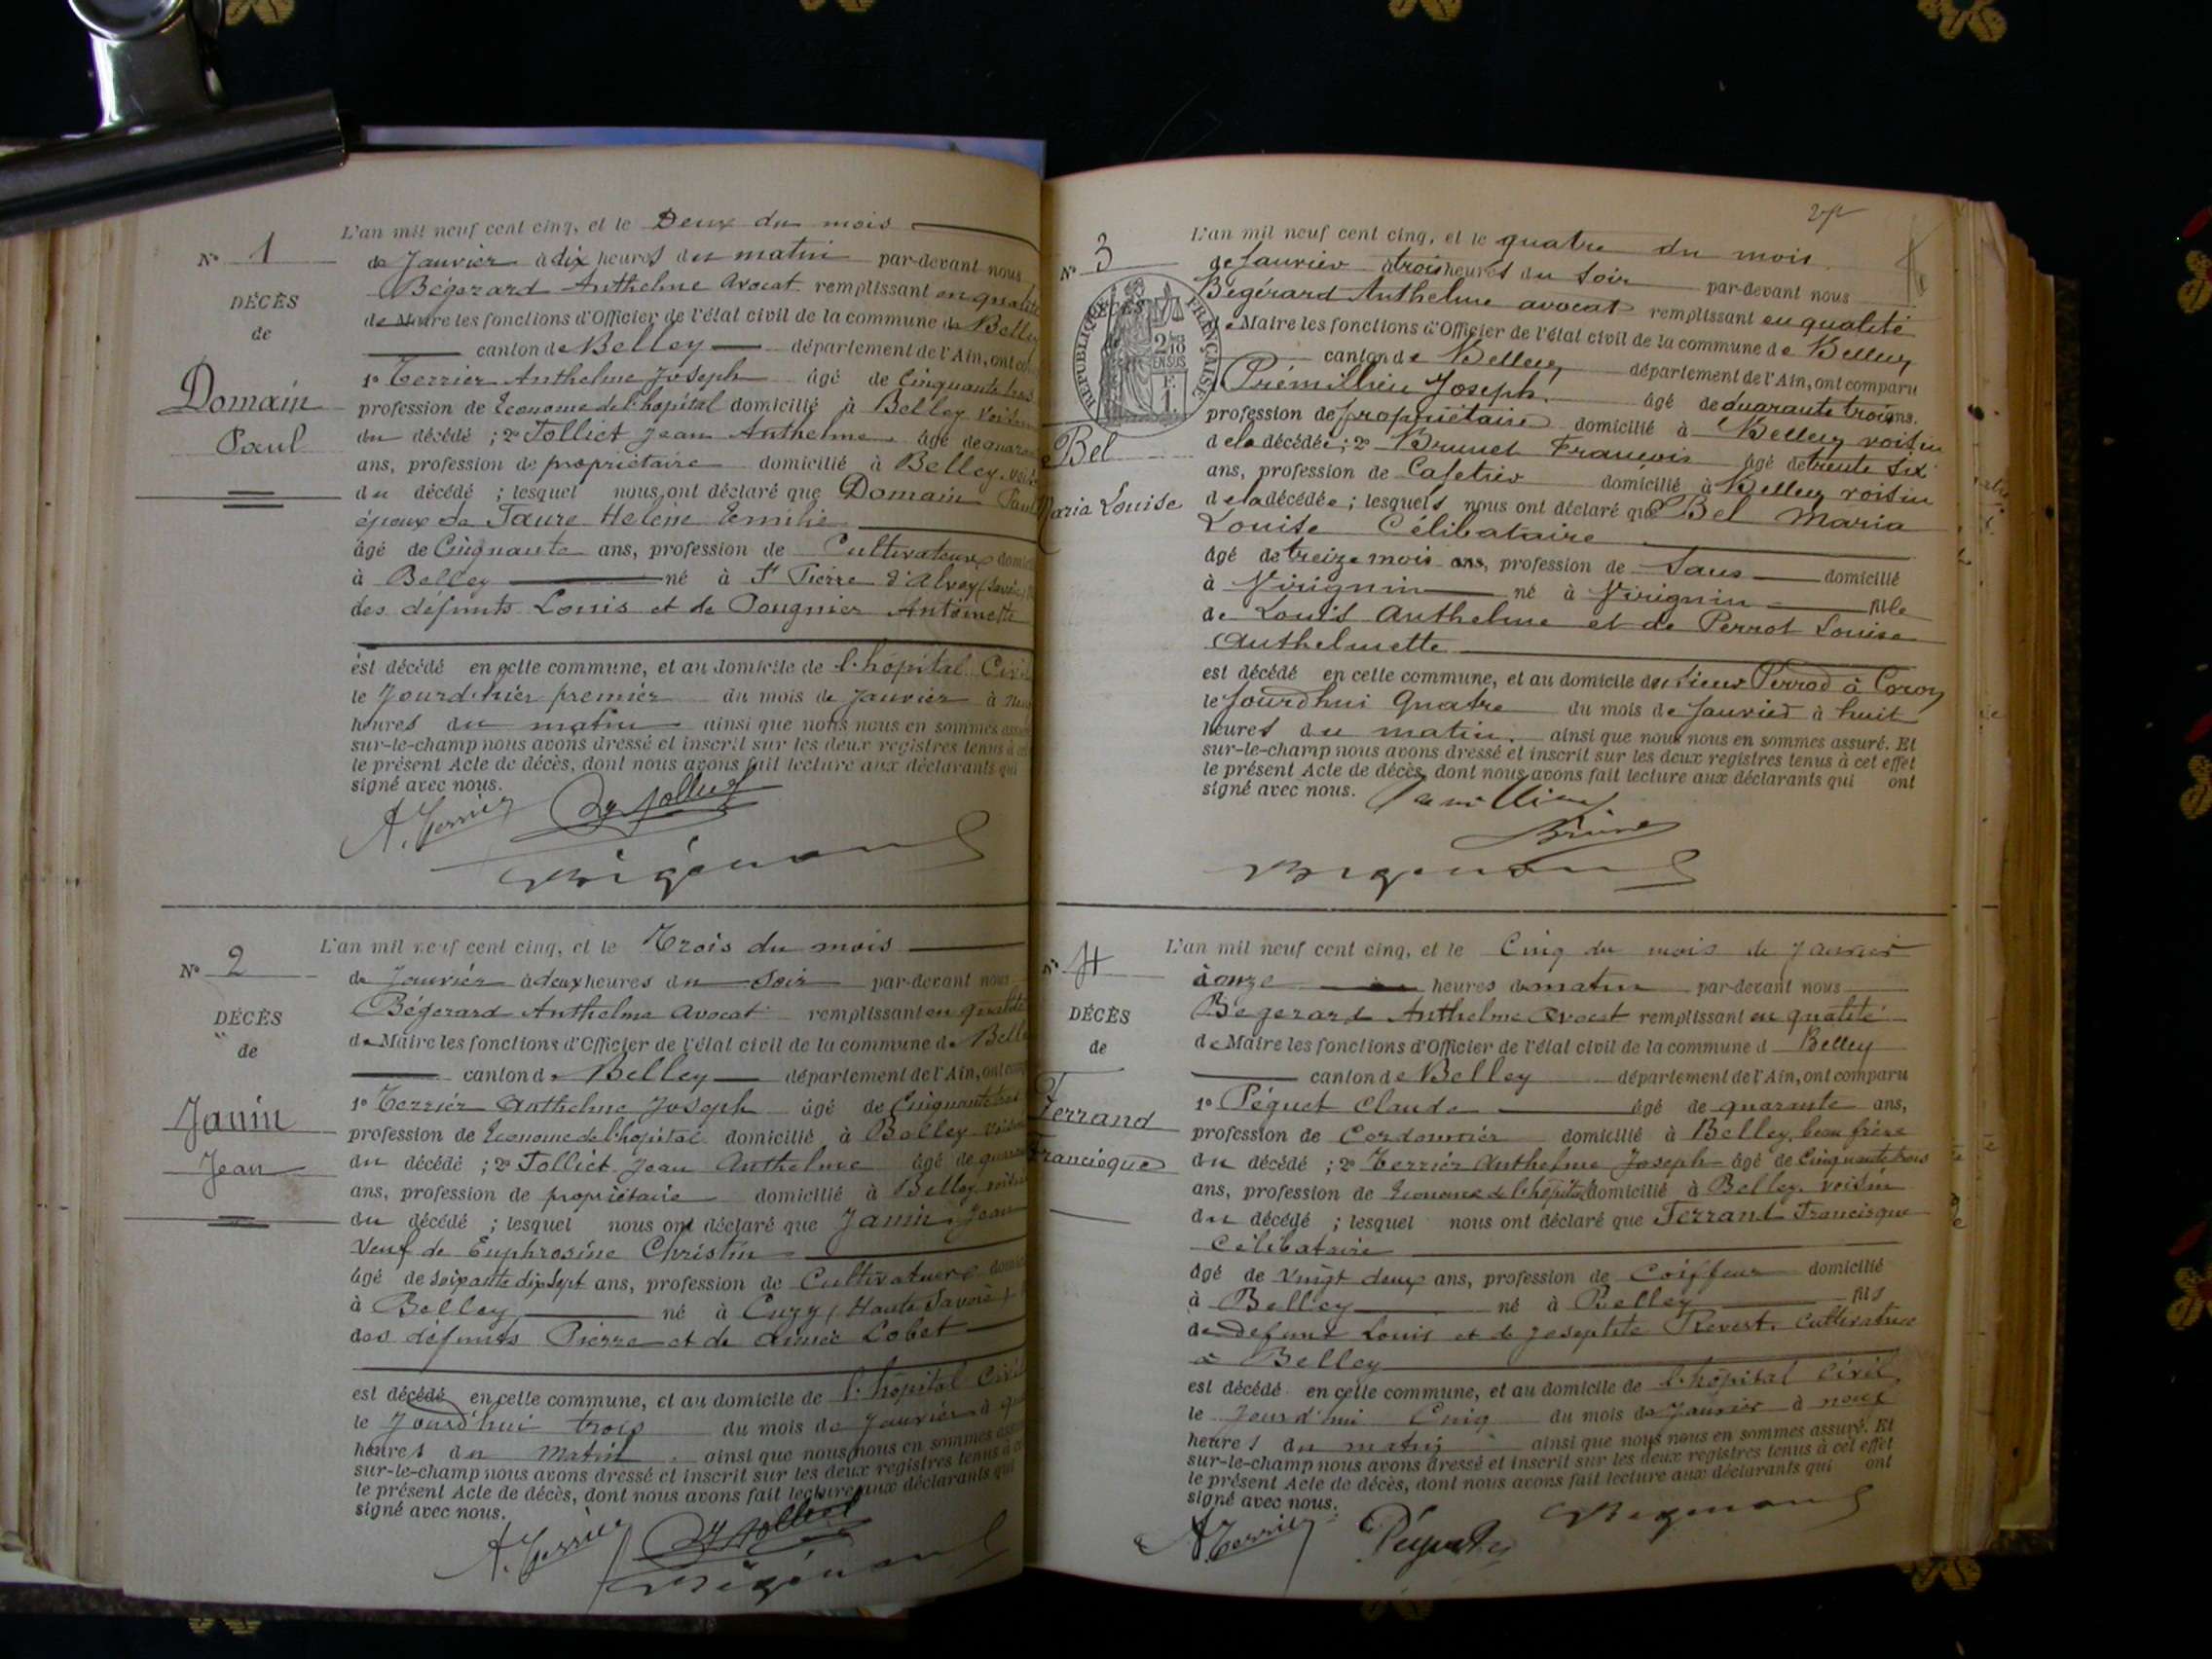 L'an mil neuf cent cinq, et le Deux du mois
N° 1
de Janvier à dix heures du matin par-devant nous
Bégerard Anthelme Avocat remplissant en qualité
DÉCÈS
de Maire les fonctions d'Officier de l'état civil de la commune de Belley
de
canton de Belley département de l'Ain, ont
1° Terrier Anthelme Joseph âgé de Cinquante trois
Domain
profession de Econome de l'hopital domicilié à Belley voisin
Paul
du décédé ; 2° Jolliet Jean Anthelme âgé de
ans, profession de propriétaire domicilié à Belley
du décédé ; lesquel nous ont déclaré que Domain Paul
époux de Faure Helène Emilie
âgé de Cinquante ans, profession de Cultivateur
à Belley né à St Pierre d'Alvey
des défunts Louis et de Pougnier Antoinette
est décédé en cette commune, et au domicile de l'hôpital Civil
le Jourd'hier premier du mois de Janvier à
heures du matin ainsi que nous nous en sommes
sur-le-champ nous avons dressé et inscrit sur les deux registres tenus à
le présent Acte de décès, dont nous avons fait lecture aux déclarants qui
signé avec nous.
A. Terrier Jolliet
Bégerard
L'an mil neuf cent cinq, et le Trois du mois
N° 2
de Janvier à deux heures du Soir par-devant nous
Bégerard Anthelme Avocat remplissant en qualité
DÉCÈS
de Maire les fonctions d'Officier de l'état civil de la commune de Belley
de
canton de Belley département de l'Ain, ont
1° Terrier Anthelme Joseph âgé de Cinquante trois
Janin
profession de Econome de l'hopital domicilié à Belley voisin
Jean
du décédé ; 2° Jolliet Jean Anthelme âgé de
ans, profession de propriétaire domicilié à Belley voisin
du décédé ; lesquel nous ont déclaré que Janin Jean
Veuf de Euphrosine Christin
âgé de soixante dix sept ans, profession de Cultivateur
à Belley né à Cuzy (Haute Savoie)
des défunts Pierre et de Aimée Lobet
est décédé en cette commune, et au domicile de l'hôpital Civil
le Jourd'hui trois du mois de Janvier à
heures du matin ainsi que nous nous en sommes
sur-le-champ nous avons dressé et inscrit sur les deux registres tenus à
le présent Acte de décès, dont nous avons fait lecture aux déclarants qui
signé avec nous.
A. Terrier Jolliet
Bégerard
L'an mil neuf cent cinq, et le quatre du mois
N° 3
de Janvier à trois heures du Soir par-devant nous
Bégérard Anthelme avocat remplissant en qualité
DÉCÈS
RÉPUBLIQUE FRANÇAISE
de Maire les fonctions d'Officier de l'état civil de la commune de Belley
canton de Belley département de l'Ain, ont comparu
Prémillieu Joseph âgé de quarante trois ans.
profession de propriétaire domicilié à Belley voisin
Bel
de la décédée ; 2° Brunet François âgé de trente six
ans, profession de Cafetier domicilié à Belley voisin
Maria Louise
de la décédée ; lesquels nous ont déclaré que Bel Maria
Louise Célibataire
âgé de treize mois ans, profession de Sans domicilié
à Virignin né à Virignin fille
de Louis Anthelme et de Perrot Louise
Anthelmette
est décédé en cette commune, et au domicile du Sieur Perrod à Coron
le Jourd'hui Quatre du mois de Janvier à huit
heures du matin. ainsi que nous nous en sommes assuré. Et
sur-le-champ nous avons dressé et inscrit sur les deux registres tenus à cet effet
le présent Acte de décès, dont nous avons fait lecture aux déclarants qui ont
signé avec nous.
Brunet
Bégerard
L'an mil neuf cent cinq, et le Cinq du mois de Janvier
N° 4
à onze heures du matin par-devant nous
Bégerard Anthelme Avocat remplissant en qualité
DÉCÈS
de Maire les fonctions d'Officier de l'état civil de la commune d Belley
de
canton de Belley département de l'Ain, ont comparu
1° Péguet Claude âgé de quarante ans,
Ferrand
profession de Cordonnier domicilié à Belley, beau frère
Francisque
du décédé ; 2° Terrier Anthelme Joseph âgé de Cinquante trois
ans, profession de Econome de l'hôpital domicilié à Belley. voisin
du décédé ; lesquel nous ont déclaré que Ferrand Francisque
Célibataire
âgé de Vingt deux ans, profession de Coiffeur domicilié
à Belley né à Belley fils
de défunt Louis et de Josephte Revest. Cultivatrice
à Belley
est décédé en cette commune, et au domicile de l'hôpital Civil
le Jourd'hui Cinq du mois de Janvier à neuf
heures du matin ainsi que nous nous en sommes assuré. Et
sur-le-champ nous avons dressé et inscrit sur les deux registres tenus à cet effet
le présent Acte de décès, dont nous avons fait lecture aux déclarants qui ont
signé avec nous.
A. Terrier Péguet Bégerard